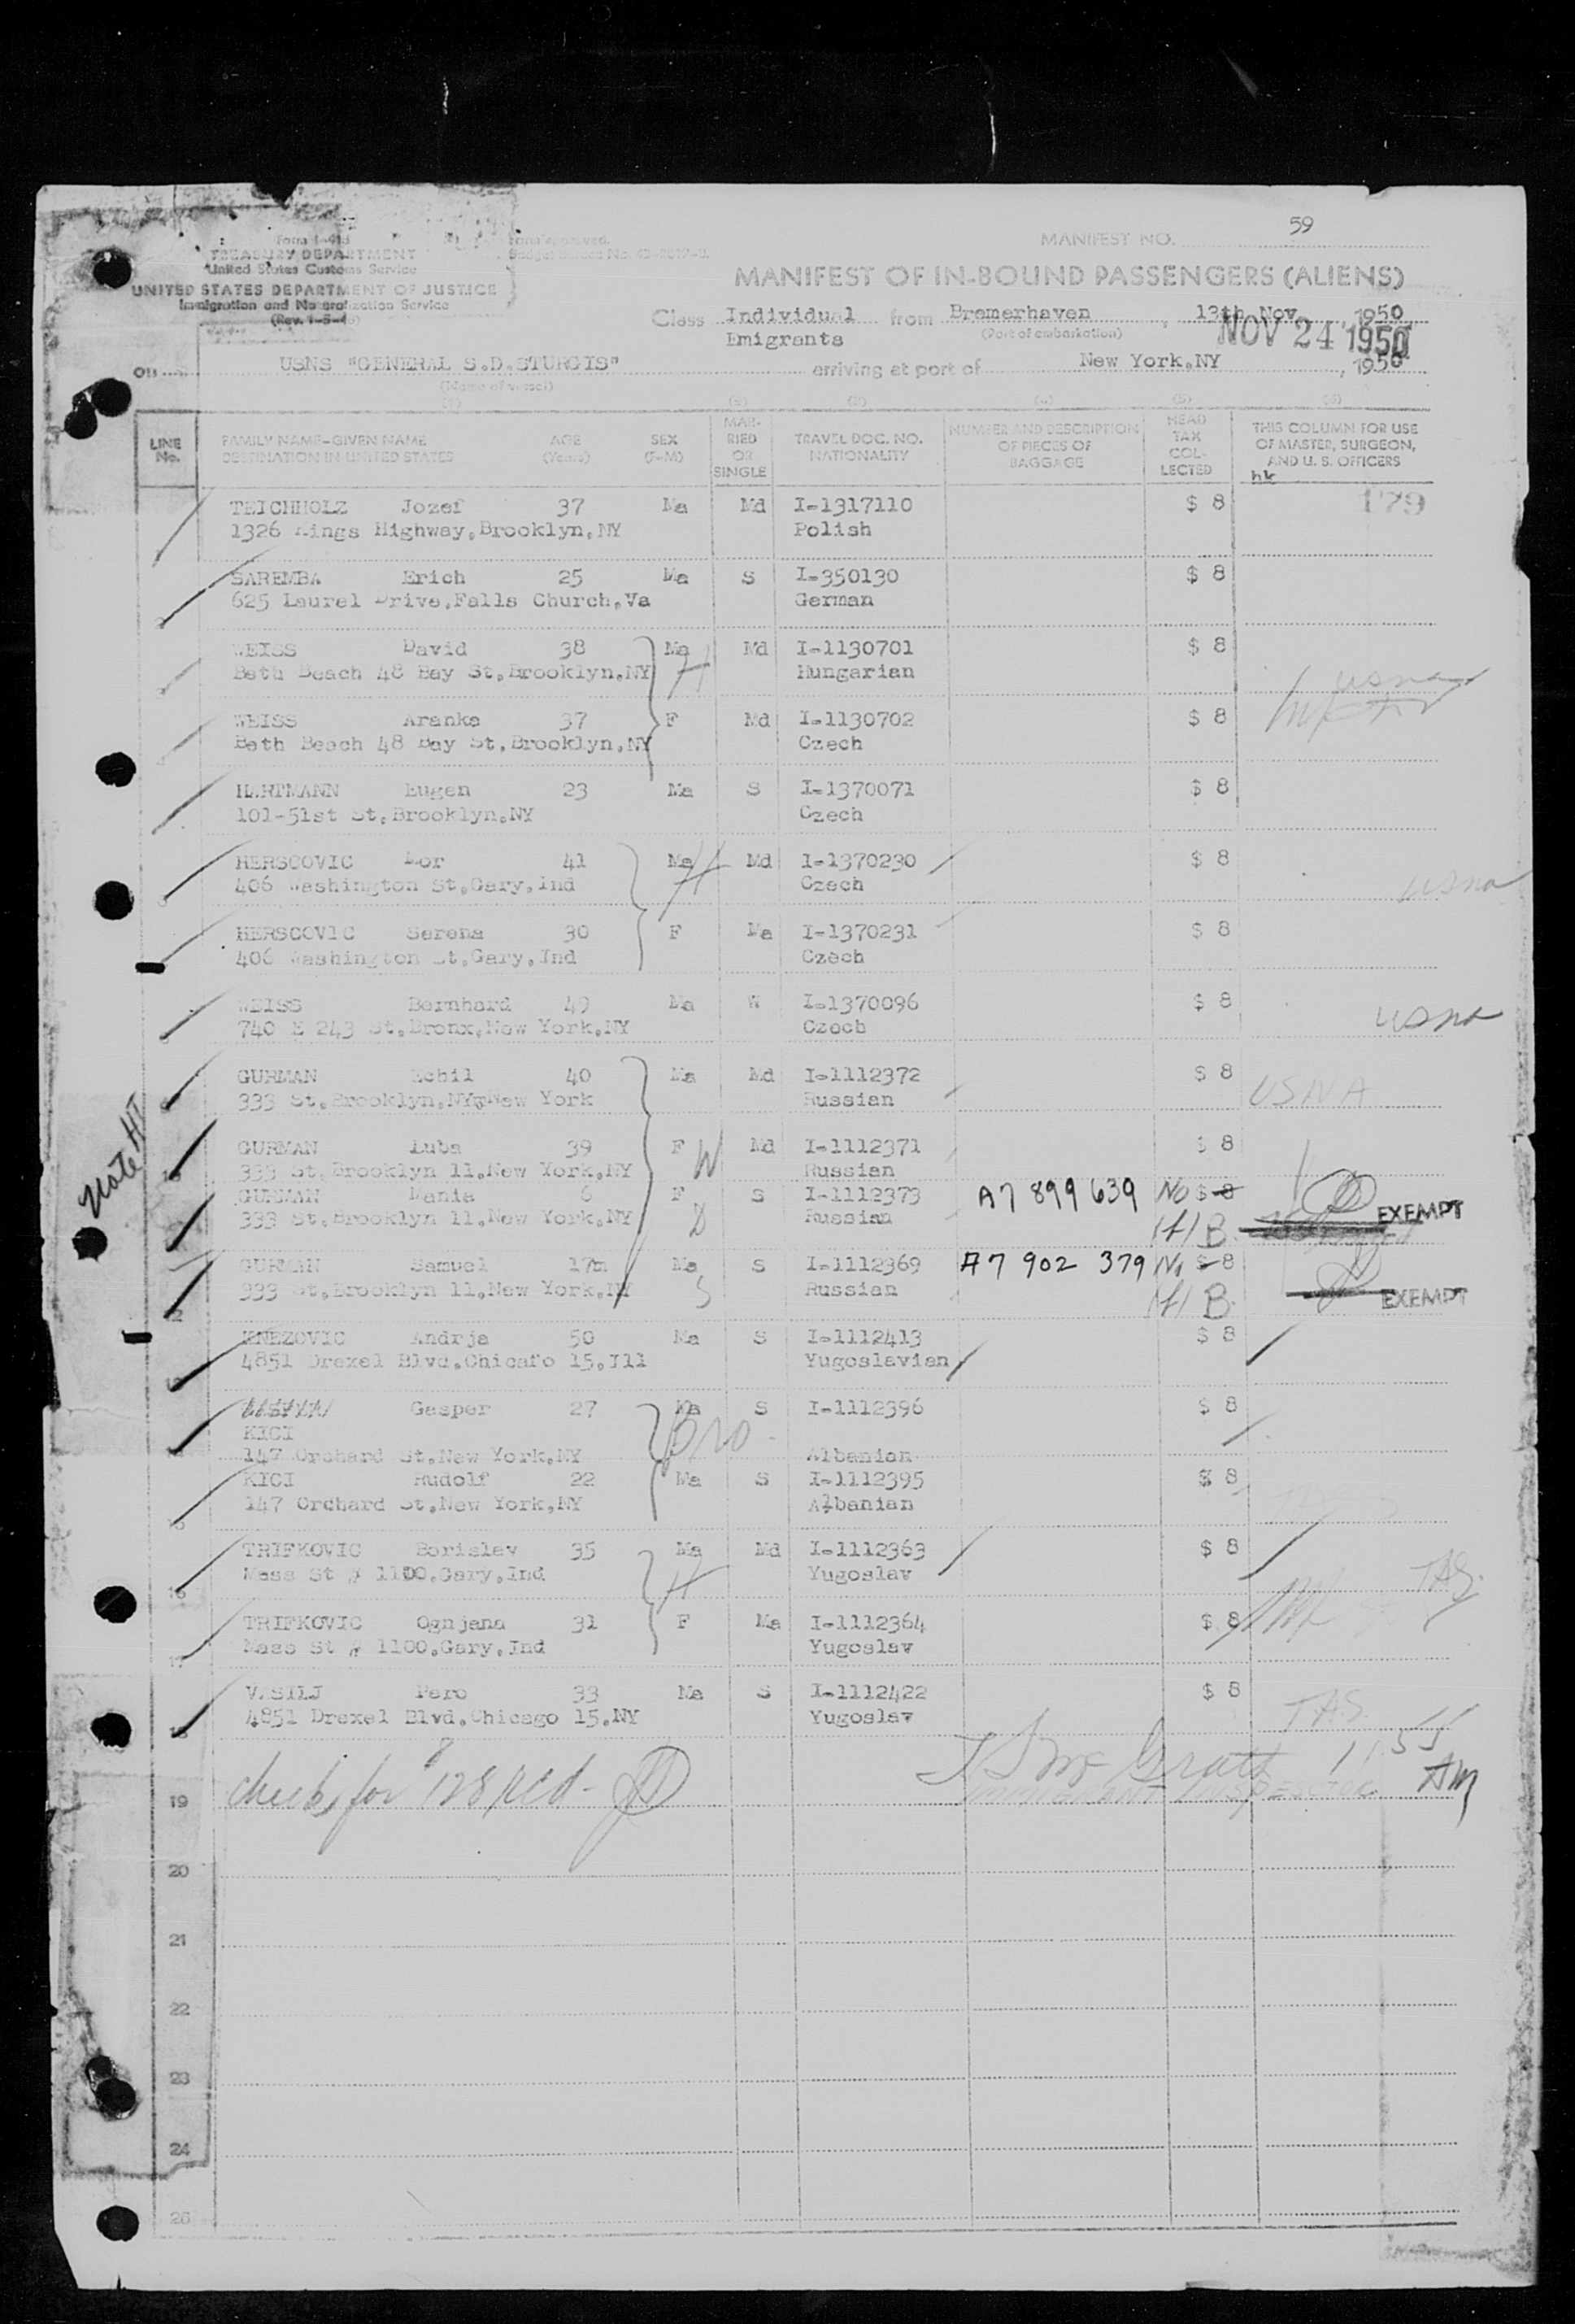 59
Form I-418
TREASURY DEPARTMENT
United States Customs Service
UNITED STATES DEPARTMENT OF JUSTICE
Immigration and Naturalization Service
MANIFEST NO.
MANIFEST OF IN-BOUND PASSENGERS (ALIENS)
Class Individual from Bremerhaven, 13th Nov, 1950
Emigrants (Port of embarkation) NOV 24 1950
on USNS "GENERAL S.D.STURGIS" arriving at port of New York,NY, 1950
(Name of vessel)
(1) (2) (3) (4) (5) (6)
LINE No. FAMILY NAME-GIVEN NAME DESTINATION IN UNITED STATES AGE (Years) SEX (F-M) MARRIED OR SINGLE TRAVEL DOC. NO. NATIONALITY NUMBER AND DESCRIPTION OF PIECES OF BAGGAGE HEAD TAX COLLECTED THIS COLUMN FOR USE OF MASTER, SURGEON, AND U. S. OFFICERS
hk
TEICHHOLZ Jozef 37 Ma Md I-1317110 $ 8 179
1326 Kings Highway,Brooklyn,NY Polish
SAREMBA Erich 25 Ma S I-350130 $ 8
625 Laurel Drive,Falls Church,Va German
WEISS David 38 Ma Md I-1130701 $ 8
Bath Beach 48 Bay St,Brooklyn,NY H Hungarian usna
WEISS Aranka 37 F Md I-1130702 $ 8
Bath Beach 48 Bay St,Brooklyn,NY Czech
HARTMANN Eugen 23 Ma S I-1370071 $ 8
101-51st St,Brooklyn,NY Czech
HERSCOVIC Mor 41 Ma H Md I-1370230 $ 8
406 Washington St,Gary,Ind Czech usna
HERSCOVIC Serena 30 F Ma I-1370231 $ 8
406 Washington St,Gary,Ind Czech
WEISS Bernhard 49 Ma W I-1370096 $ 8
740 E 243 St,Bronx,New York,NY Czech usna
GURMAN Echil 40 Ma Md I-1112372 $ 8
333 St,Brooklyn,NY,New York Russian USNA
Note HT
GURMAN Luba 39 F W Md I-1112371 $ 8
333 St,Brooklyn 11,New York,NY Russian
GURMAN Mania 6 F S I-1112373 A7 899 639 No $ 8
333 St,Brooklyn 11,New York,NY D Russian H1 B. EXEMPT
GURMAN Samuel 17m Ma S I-1112369 A7 902 379 No $ 8
333 St,Brooklyn 11,New York,NY S Russian H1 B. EXEMPT
12
KNEZOVIC Andrja 50 Ma S I-1112413 $ 8
4851 Drexel Blvd,Chicafo 15,Ill Yugoslavian
Gasper 27 Ma S I-1112396 $ 8
KICI Bro.
147 Orchard St,New York,NY Albanian
KICI Rudolf 22 Ma S I-1112395 $ 8
147 Orchard St,New York,NY Albanian
TRIFKOVIC Borislav 35 Ma Md I-1112363 $ 8
16 Mass St # 1100,Gary,Ind H Yugoslav TAS.
TRIFKOVIC Ognjana 31 F Ma I-1112364 $ 8
17 Mass St # 1100,Gary,Ind Yugoslav
VASILJ Pero 33 Ma S I-1112422 $ 8
18 4851 Drexel Blvd,Chicago 15,NY Yugoslav TAS.
1155 AM
19 check for
IMMIGRANT INSPECTOR
20
21
22
23
24
25